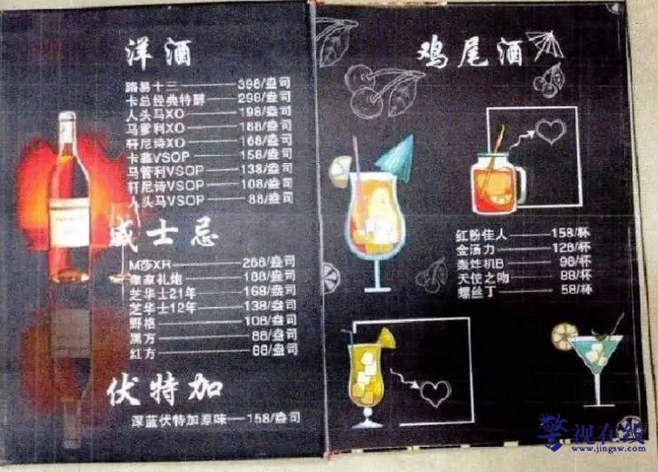 洋酒
路易十三 398/盎司
卡慕经典特醇 298/盎司
人头马XO 198/盎司
马爹利XO 188/盎司
轩尼诗XO 168/盎司
卡慕VSOP 158/盎司
马爹利VSOP 138/盎司
轩尼诗VSOP 108/盎司
人头马VSOP 88/盎司
威士忌
M莎XR 266/盎司
皇家礼炮 188/盎司
芝华士21年 168/盎司
芝华士12年 138/盎司
野格 108/盎司
黑方 88/盎司
红方 88/盎司
伏特加
深蓝伏特加原味 158/盎司
鸡尾酒
红粉佳人 158/杯
金汤力 128/杯
轰炸机B 98/杯
天使之吻 88/杯
螺丝丁 58/杯
警视在线
www.jingsw.com